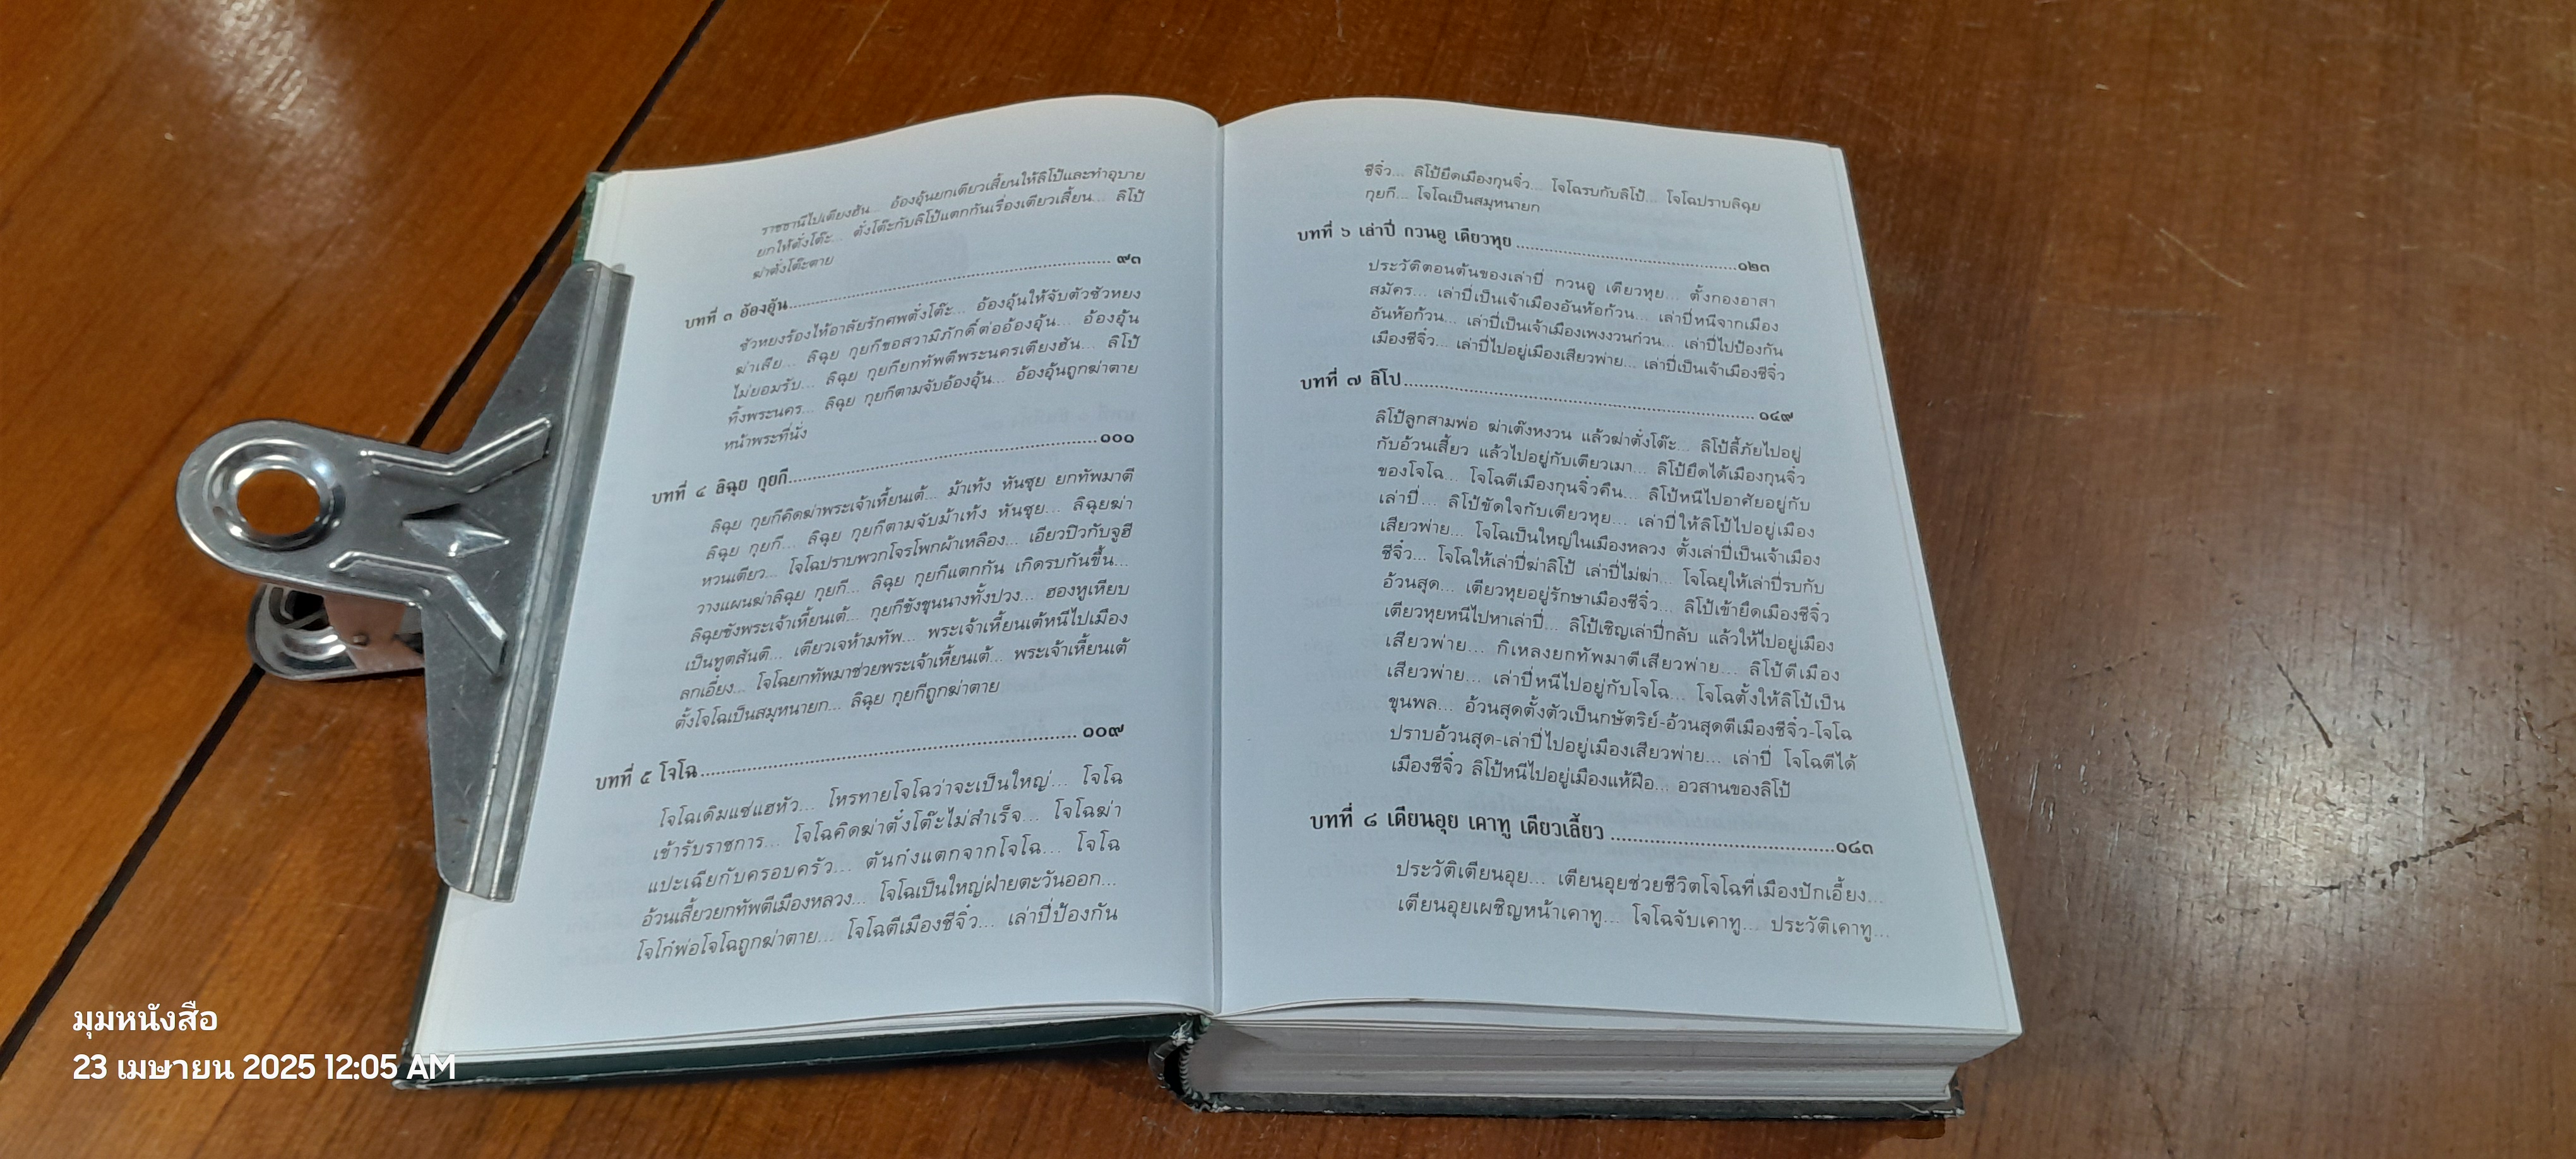 ราชธานีไปเตียงฮัน... อ้องอุ้นยกเตียวเสี้ยนให้ลิโป้และทำอุบาย
ยกให้ตั๋งโต๊ะ... ตั๋งโต๊ะกับลิโป้แตกกันเรื่องเตียวเสี้ยน... ลิโป้
ฆ่าตั๋งโต๊ะตาย
บทที่ ๓ อ้องอุ้น ๙๓
ซัวหยงร้องไห้อาลัยรักศพตั๋งโต๊ะ... อ้องอุ้นให้จับตัวซัวหยง
ฆ่าเสีย... ลิฉุย กุยกีขอสวามิภักดิ์ต่ออ้องอุ้น... อ้องอุ้น
ไม่ยอมรับ... ลิฉุย กุยกียกทัพตีพระนครเตียงฮัน... ลิโป้
ทิ้งพระนคร... ลิฉุย กุยกีตามจับอ้องอุ้น... อ้องอุ้นถูกฆ่าตาย
หน้าพระที่นั่ง
บทที่ ๔ ลิฉุย กุยกี ๑๐๑
ลิฉุย กุยกีคิดฆ่าพระเจ้าเหี้ยนเต้... ม้าเท้ง หันซุย ยกทัพมาตี
ลิฉุย กุยกี... ลิฉุย กุยกีตามจับม้าเท้ง หันซุย... ลิฉุยฆ่า
หวนเตียว... โจโฉปราบพวกโจรโพกผ้าเหลือง... เอียวปิวกับจูฮี
วางแผนฆ่าลิฉุย กุยกี... ลิฉุย กุยกีแตกกัน เกิดรบกันขึ้น...
ลิฉุยขังพระเจ้าเหี้ยนเต้... กุยกีขังขุนนางทั้งปวง... ฮองหูเทียบ
เป็นทูตสันติ... เตียวเจห้ามทัพ... พระเจ้าเหี้ยนเต้หนีไปเมือง
ลกเอี๋ยง... โจโฉยกทัพมาช่วยพระเจ้าเหี้ยนเต้... พระเจ้าเหี้ยนเต้
ตั้งโจโฉเป็นสมุหนายก... ลิฉุย กุยกีถูกฆ่าตาย
บทที่ ๕ โจโฉ ๑๐๙
โจโฉเดิมแซ่แฮหัว... โหรทายโจโฉว่าจะเป็นใหญ่... โจโฉ
เข้ารับราชการ... โจโฉคิดฆ่าตั๋งโต๊ะไม่สำเร็จ... โจโฉฆ่า
แปะเฉียกับครอบครัว... ตันก๋งแตกจากโจโฉ... โจโฉ
อ้วนเสี้ยวยกทัพตีเมืองหลวง... โจโฉเป็นใหญ่ฝ่ายตะวันออก...
โจโก๋พ่อโจโฉถูกฆ่าตาย... โจโฉตีเมืองชีจิ๋ว... เล่าปี่ป้องกัน
ชีจิ๋ว... ลิโป้ยึดเมืองกุนจิ๋ว... โจโฉรบกับลิโป้... โจโฉปราบลิฉุย
กุยกี... โจโฉเป็นสมุหนายก
บทที่ ๖ เล่าปี่ กวนอู เตียวหุย ๑๒๓
ประวัติตอนต้นของเล่าปี่ กวนอู เตียวหุย... ตั้งกองอาสา
สมัคร... เล่าปี่เป็นเจ้าเมืองอันห้อก้วน... เล่าปี่หนีจากเมือง
อันห้อก้วน... เล่าปี่เป็นเจ้าเมืองเพงงวนก๋วน... เล่าปี่ไปป้องกัน
เมืองชีจิ๋ว... เล่าปี่ไปอยู่เมืองเสียวพ่าย... เล่าปี่เป็นเจ้าเมืองชีจิ๋ว
บทที่ ๗ ลิโป ๑๔๙
ลิโป้ลูกสามพ่อ ฆ่าเต๊งหงวน แล้วฆ่าตั๋งโต๊ะ... ลิโป้ลี้ภัยไปอยู่
กับอ้วนเสี้ยว แล้วไปอยู่กับเตียวเมา... ลิโป้ยึดได้เมืองกุนจิ๋ว
ของโจโฉ... โจโฉตีเมืองกุนจิ๋วคืน... ลิโป้หนีไปอาศัยอยู่กับ
เล่าปี่... ลิโป้ขัดใจกับเตียวหุย... เล่าปี่ให้ลิโป้ไปอยู่เมือง
เสียวพ่าย... โจโฉเป็นใหญ่ในเมืองหลวง ตั้งเล่าปี่เป็นเจ้าเมือง
ชีจิ๋ว... โจโฉให้เล่าปี่ฆ่าลิโป้ เล่าปี่ไม่ฆ่า... โจโฉยุให้เล่าปี่รบกับ
อ้วนสุด... เตียวหุยอยู่รักษาเมืองชีจิ๋ว... ลิโป้เข้ายึดเมืองชีจิ๋ว
เตียวหุยหนีไปหาเล่าปี่... ลิโป้เชิญเล่าปี่กลับ แล้วให้ไปอยู่เมือง
เสียวพ่าย... กิเหลงยกทัพมาตีเสียวพ่าย... ลิโป้ตีเมือง
เสียวพ่าย... เล่าปี่หนีไปอยู่กับโจโฉ... โจโฉตั้งให้ลิโป้เป็น
ขุนพล... อ้วนสุดตั้งตัวเป็นกษัตริย์-อ้วนสุดตีเมืองชีจิ๋ว-โจโฉ
ปราบอ้วนสุด-เล่าปี่ไปอยู่เมืองเสียวพ่าย... เล่าปี่ โจโฉตีได้
เมืองชีจิ๋ว ลิโป้หนีไปอยู่เมืองแห้ฝือ... อวสานของลิโป้
บทที่ ๘ เตียนอุย เคาทู เตียวเลี้ยว ๑๘๓
ประวัติเตียนอุย... เตียนอุยช่วยชีวิตโจโฉที่เมืองปักเอี้ยง...
เตียนอุยเผชิญหน้าเคาทู... โจโฉจับเคาทู... ประวัติเคาทู...
มุมหนังสือ
23 เมษายน 2025 12:05 AM